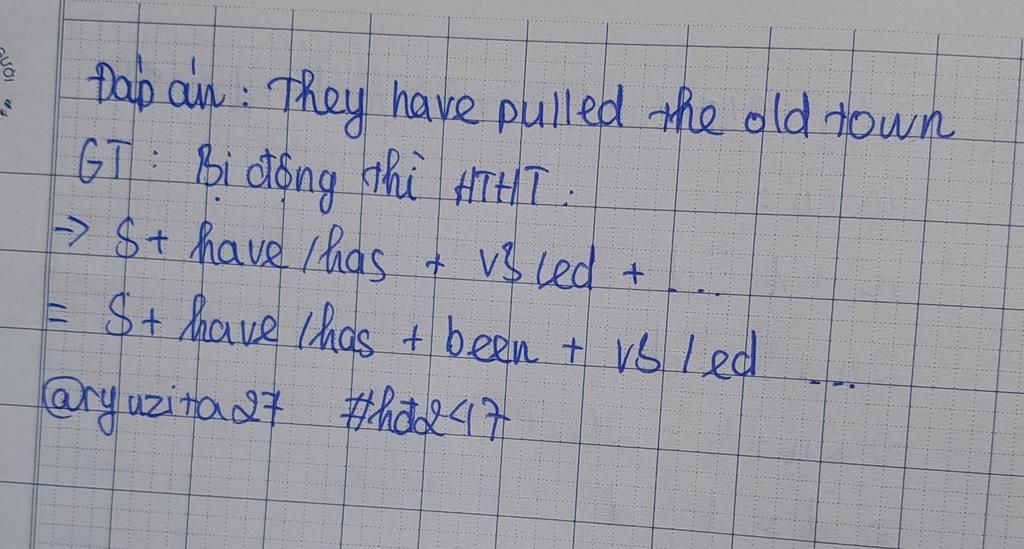 Đáp án: They have pulled the old town
GT: Bị động thì HTHT.
→ S + have / has + V3 / ed + ...
= S + have / has + been + V3 / ed ...
@ryuzita27 #hđ247